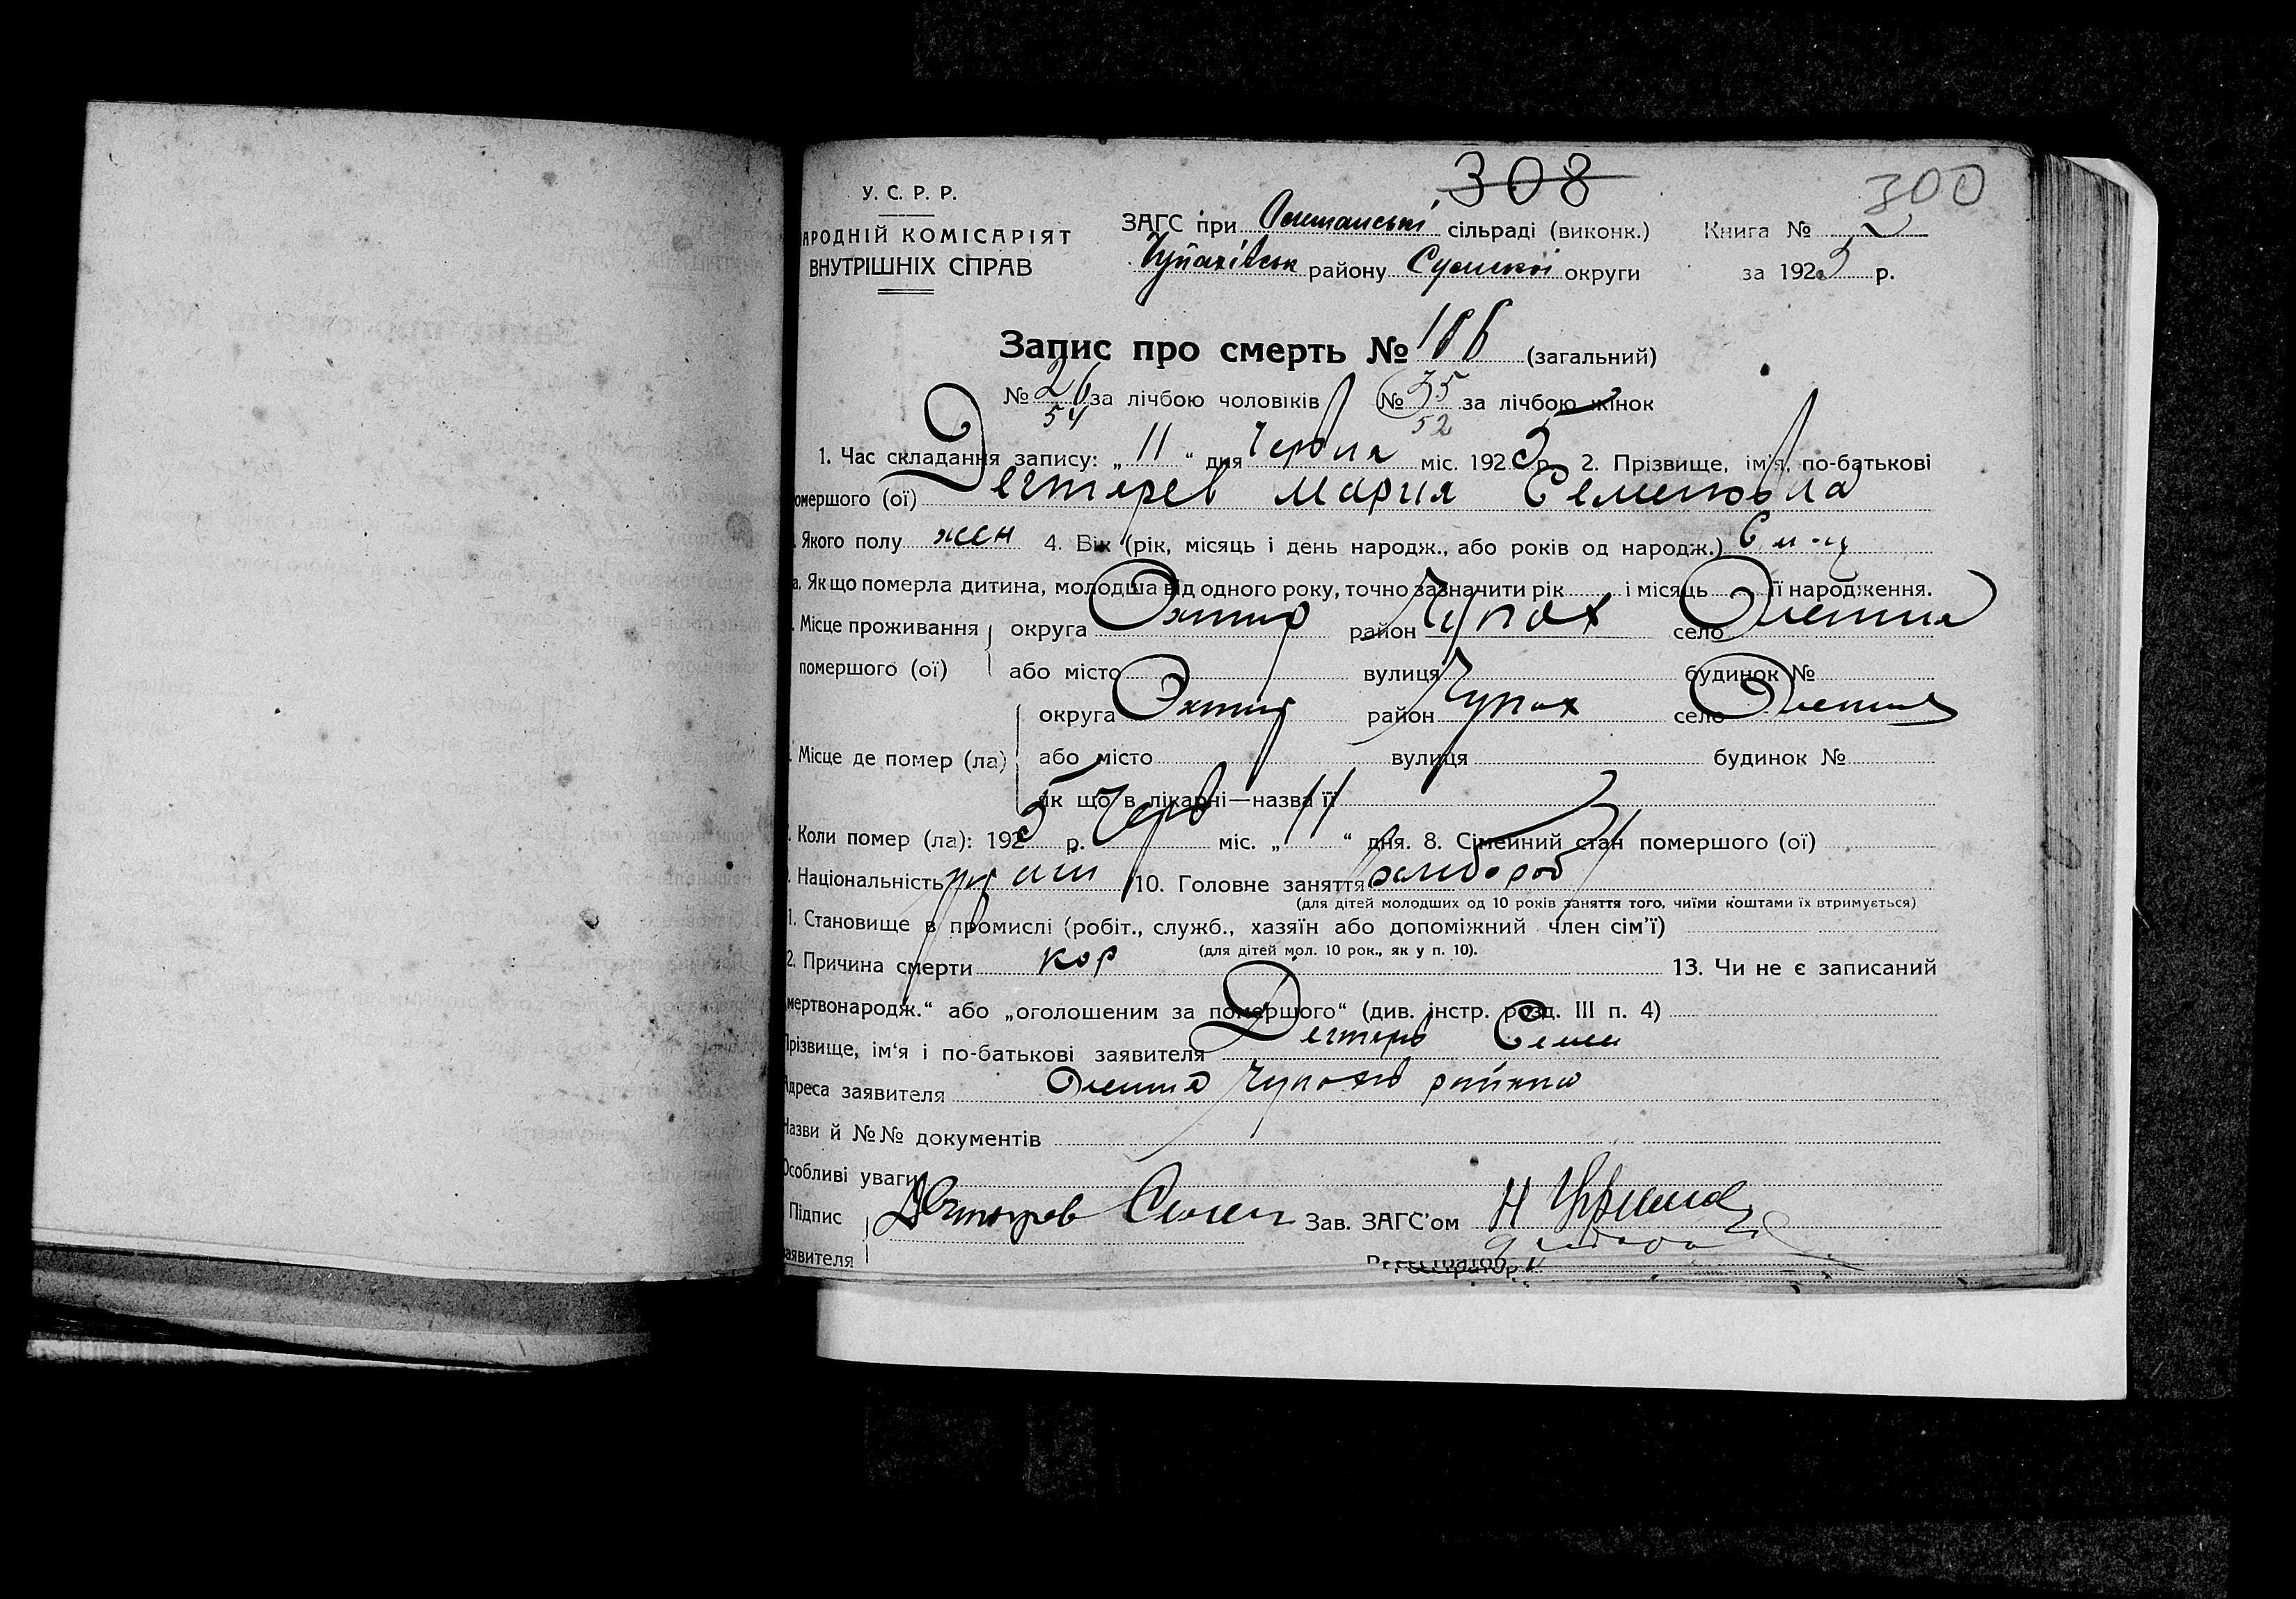 308
300
У. С. Р. Р.
АРОДНІЙ КОМІСАРІЯТ
ВНУТРІШНІХ СПРАВ
ЗАГС при сільраді (виконк.)
Книга № 2
Чупахівськ району Сумської округи
за 1925 р.
Запис про смерть № 106 (загальний)
№ 26 за лічбою чоловіків № 35 за лічбою жінок
54 52
1. Час складання запису: „ 11 “ дня Червня міс. 1925 р. 2. Прізвище, ім'я, по-батькові
омершого (ої) Дегтярев Мария Семеновна
. Якого полу жен 4. Вік (рік, місяць і день народж., або років од народж.) 6 м-ц
а. Як що померла дитина, молодша від одного року, точно зазначити рік і місяць її народження.
. Місце проживання округа Охтир район Чупах село Олешня
помершого (ої) або місто вулиця будинок №
округа Охтир район Чупах село Олешня
. Місце де помер (ла) або місто вулиця будинок №
як що в лікарні—назва її
. Коли помер (ла): 1925 р. Черв міс. „ 11 “ дня. 8. Сімейний стан помершого (ої)
. Національність 10. Головне заняття хлібороб
(для дітей молодших од 10 років заняття того, чиїми коштами їх втримується)
1. Становище в промислі (робіт., служб., хазяїн або допоміжний член сім'ї)
(для дітей мол. 10 рок., як у п. 10).
2. Причина смерти кор 13. Чи не є записаний
мертвонародж.“ або „оголошеним за помершого“ (див. інстр. розд. III п. 4)
Прізвище, ім'я і по-батькові заявителя Дегтярев Семен
Адреса заявителя Олешня Чупахів района
Назви й №№ документів
Особливі уваги
Підпис Дегтярев Семен Зав. ЗАГС'ом Н
заявителя
Реєстратор